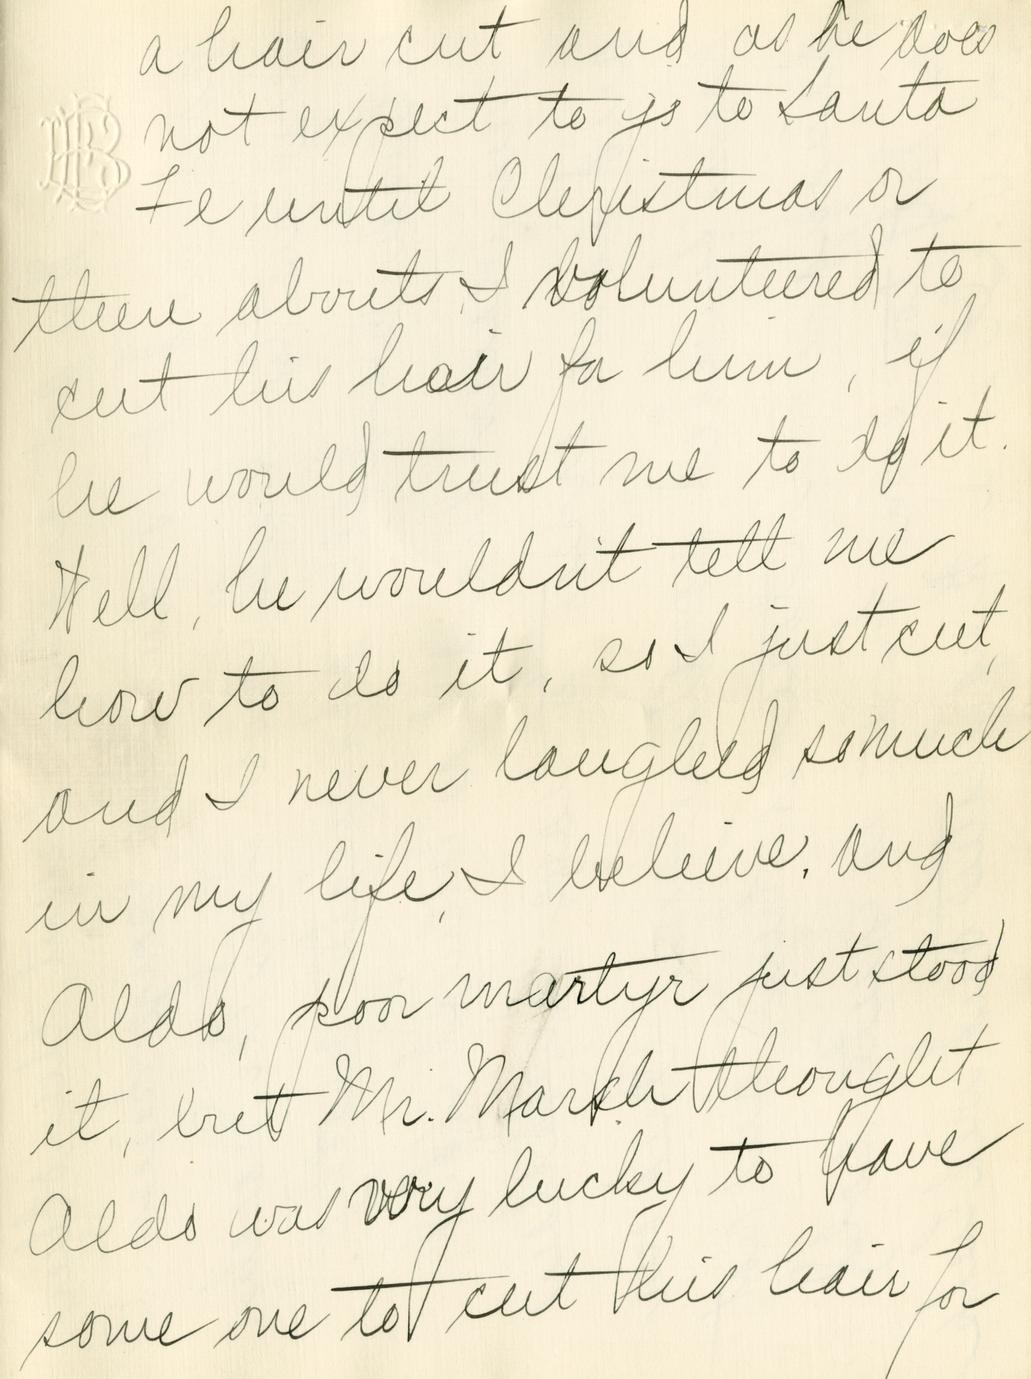 a hair cut and as he does
not expect to go to Santa
Fe until Christmas or
there abouts, I volunteered to
cut his hair for him, if
he would trust me to do it.
Well, he wouldn't tell me
how to do it, so I just cut,
and I never laughed so much
in my life, I believe, and
Aldo, poor martyr just stood
it, but Mr. Marsh thought
Aldo was very lucky to have
some one to cut his hair for